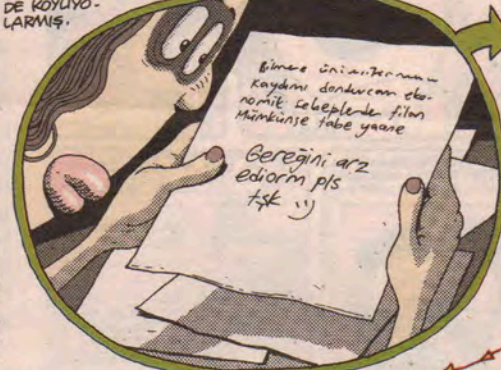 DE KOYUYO-
LARMIŞ.
Bilmere üniversitenizin
kaydımı donduracam eko-
nomik sebeplerden filan
Mümkünse tabe yaane
Gereğini arz
ediorm pls
tşk :))